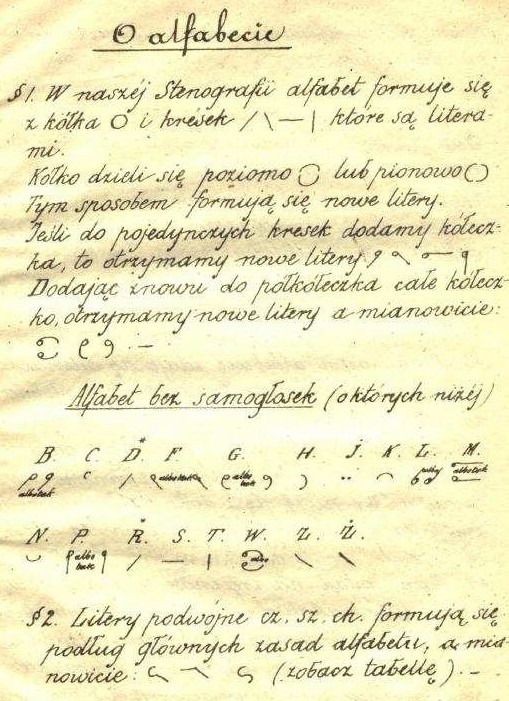 O alfabecie
§1. W naszéj Stenografii alfabet formuje się
z kółka O i kresek / \ — | które są litera-
mi.
Kółko dzieli się poziomo lub pionowo
Tym sposobem formują się nowe litery.
Jeśli do pojedynczych kresek dodamy kółecz-
ka, to otrzymamy nowe litery
Dodając znowu do półkółeczka całe kółecz-
ko, otrzymamy nowe litery a mianowicie:
Alfabet bez samogłosek (o których niżéj)
B. C. D.* F. G. H. J. K. L. M.
albo tak albo tak albo tak albo tak
N. P. R.* S. T. W. Z. Ż.
albo tak albo
§2. Litery podwójne cz. sz. ch. formują się
podług głównych zasad alfabetu, a mia-
nowicie: (zobacz tabellę). —